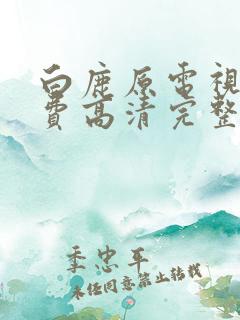 白鹿原電視
費高清完整
季忠平
未经同意禁止转载